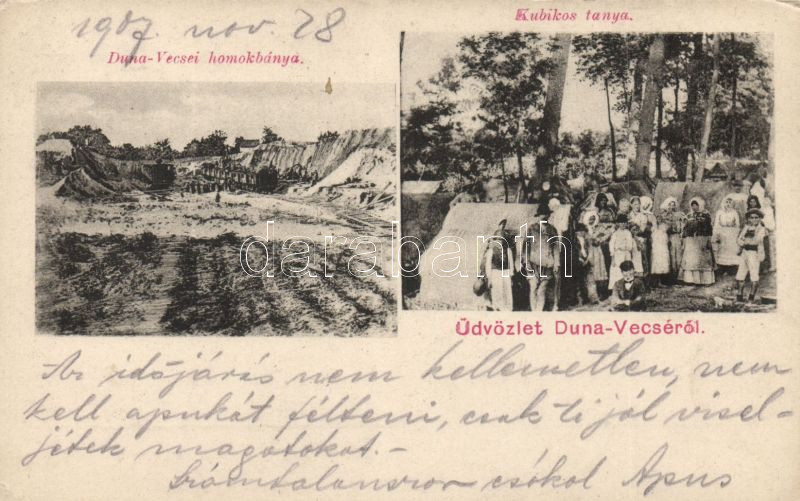 1907 nov. 28
Kubikos tanya.
Duna-Vecsei homokbánya.
darabanth
Üdvözlet Duna-Vecséről.
Az időjárás nem kellemetlen, nem
kell apukát félteni, csak ti jól visel-
jétek magatokat. –
Számtalanszor csókol Apus